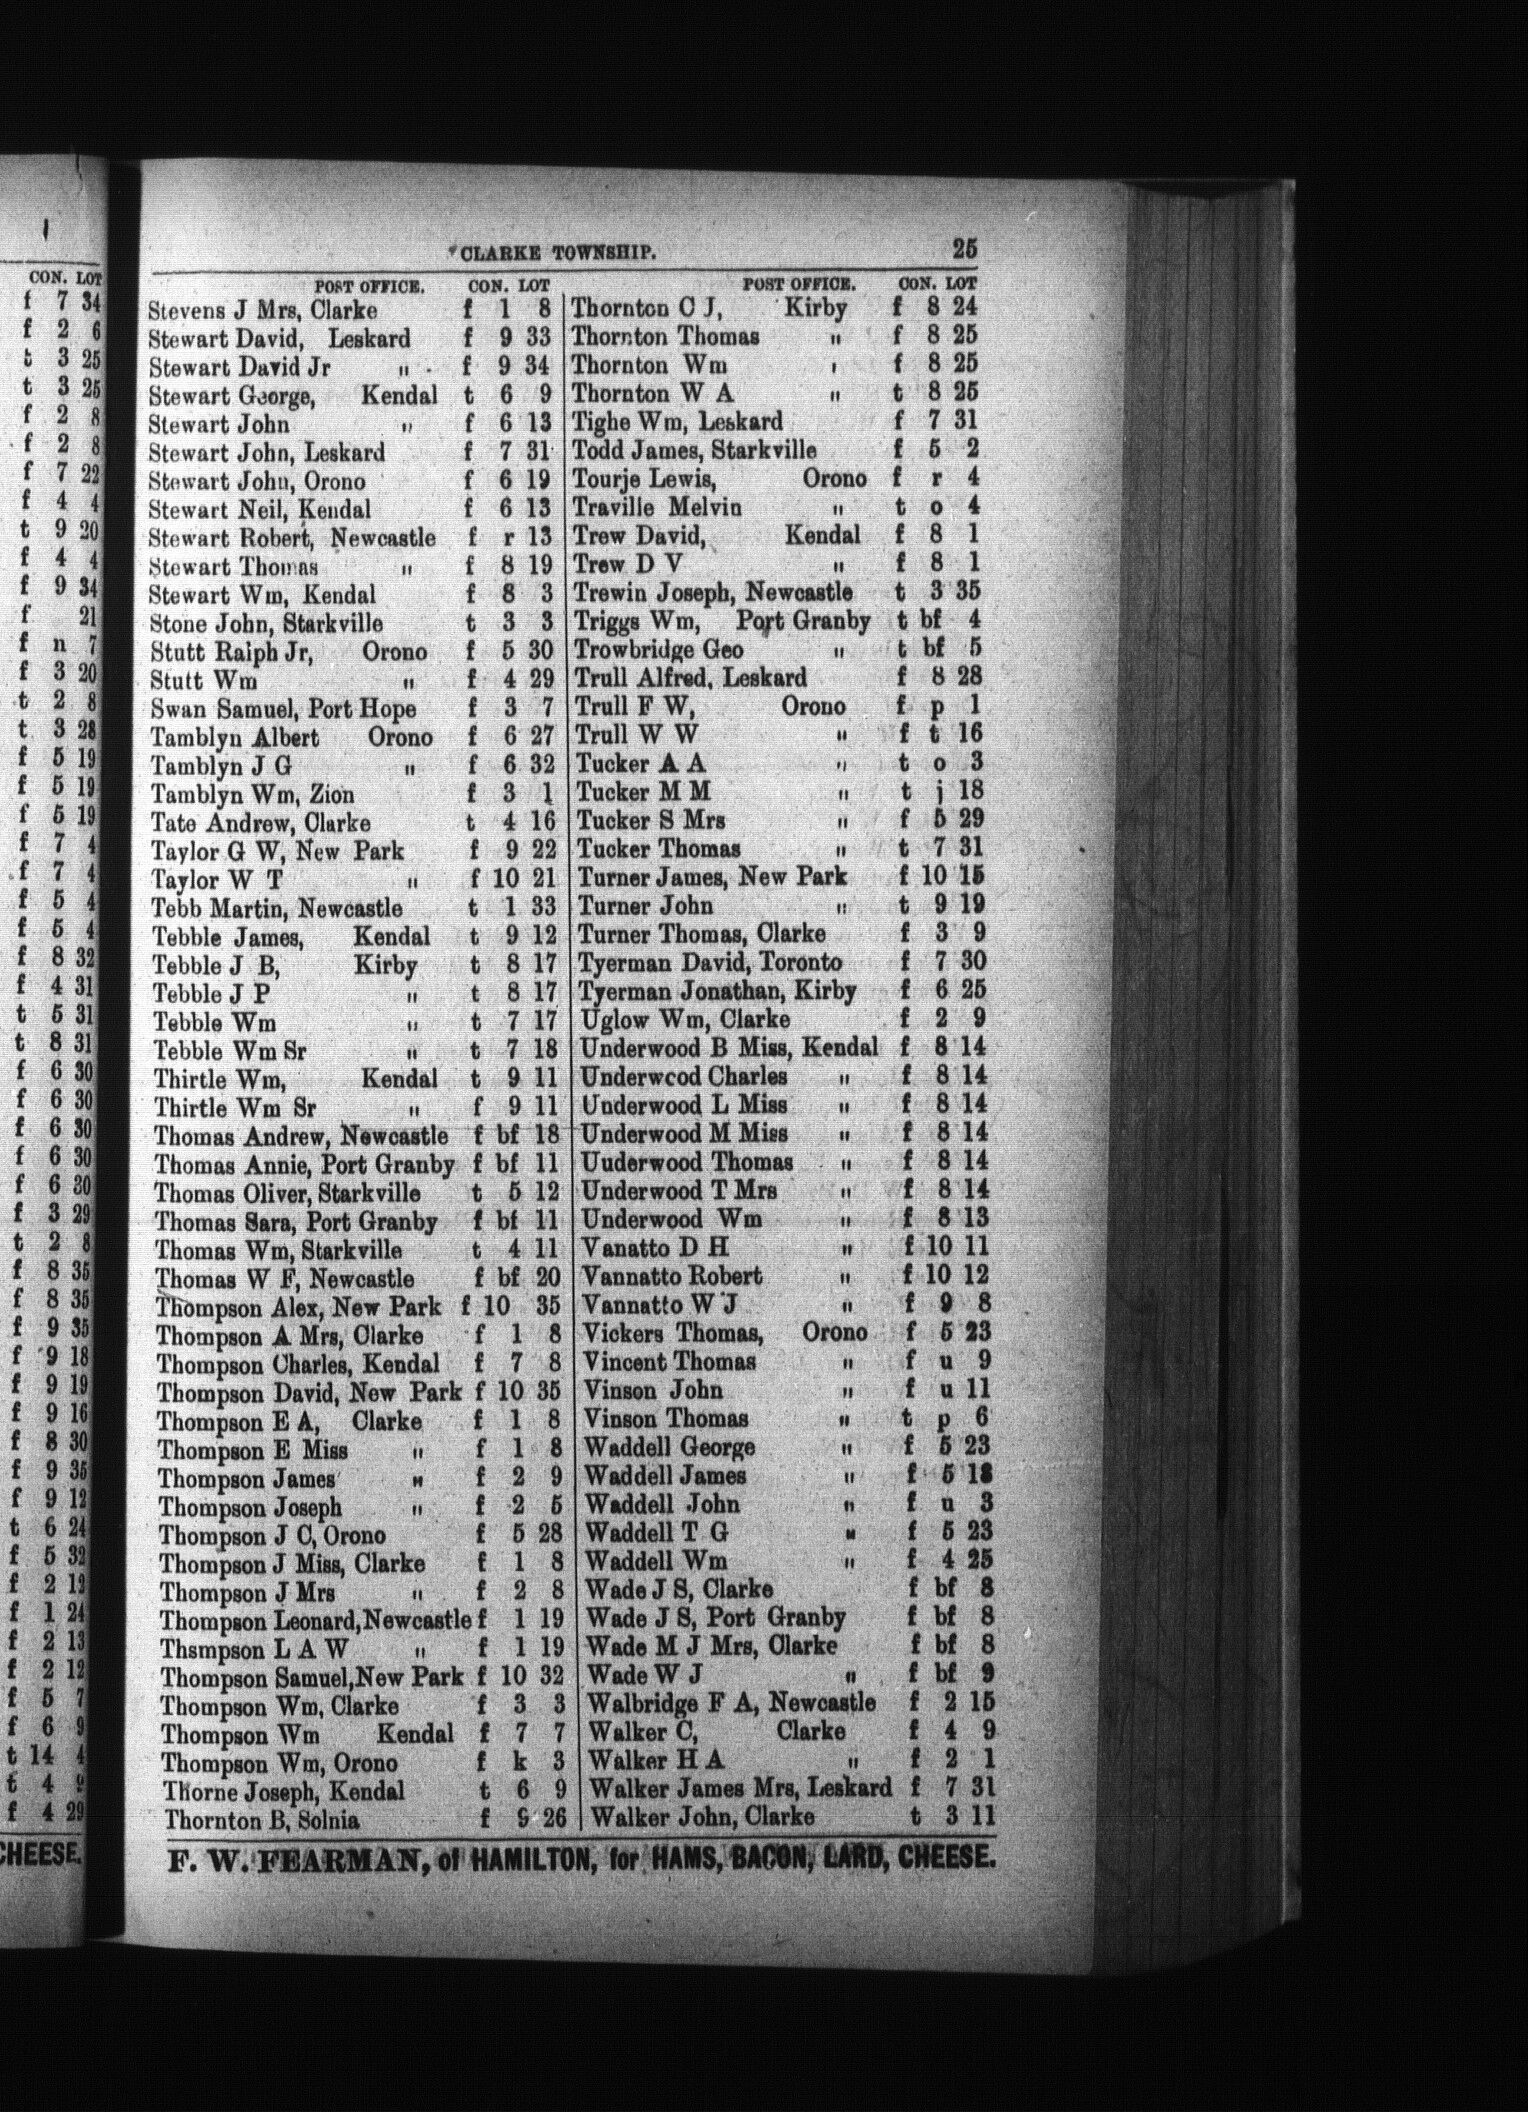 CON. LOT
f 7 34
f 2 6
t 3 25
t 3 25
f 2 8
f 2 8
f 7 22
f 4 4
t 9 20
f 4 4
f 9 34
f 21
f n 7
f 3 20
t 2 8
t 3 28
f 5 19
f 5 19
f 5 19
f 7 4
f 7 4
f 5 4
f 5 4
f 8 32
f 4 31
t 5 31
t 8 31
f 6 30
f 6 30
f 6 30
f 6 30
f 6 30
f 3 29
t 2 8
f 8 35
f 8 35
f 9 35
f 9 18
f 9 19
f 9 16
f 8 30
f 9 35
f 9 12
t 6 24
f 5 32
f 2 12
f 1 24
f 2 13
f 2 12
f 5 7
f 6 9
t 14 4
t 4 9
f 4 29
CHEESE.
CLARKE TOWNSHIP. 25
POST OFFICE. CON. LOT
Stevens J Mrs, Clarke f 1 8
Stewart David, Leskard f 9 33
Stewart David Jr " f 9 34
Stewart George, Kendal t 6 9
Stewart John " f 6 13
Stewart John, Leskard f 7 31
Stewart John, Orono f 6 19
Stewart Neil, Kendal f 6 13
Stewart Robert, Newcastle f r 13
Stewart Thomas " f 8 19
Stewart Wm, Kendal f 8 3
Stone John, Starkville t 3 3
Stutt Ralph Jr, Orono f 5 30
Stutt Wm " f 4 29
Swan Samuel, Port Hope f 3 7
Tamblyn Albert Orono f 6 27
Tamblyn J G " f 6 32
Tamblyn Wm, Zion f 3 1
Tate Andrew, Clarke t 4 16
Taylor G W, New Park f 9 22
Taylor W T " f 10 21
Tebb Martin, Newcastle t 1 33
Tebble James, Kendal t 9 12
Tebble J B, Kirby t 8 17
Tebble J P " t 8 17
Tebble Wm " t 7 17
Tebble Wm Sr " t 7 18
Thirtle Wm, Kendal t 9 11
Thirtle Wm Sr " f 9 11
Thomas Andrew, Newcastle f bf 18
Thomas Annie, Port Granby f bf 11
Thomas Oliver, Starkville t 5 12
Thomas Sara, Port Granby f bf 11
Thomas Wm, Starkville t 4 11
Thomas W F, Newcastle f bf 20
Thompson Alex, New Park f 10 35
Thompson A Mrs, Clarke f 1 8
Thompson Charles, Kendal f 7 8
Thompson David, New Park f 10 35
Thompson E A, Clarke f 1 8
Thompson E Miss " f 1 8
Thompson James " f 2 9
Thompson Joseph " f 2 5
Thompson J C, Orono f 5 28
Thompson J Miss, Clarke f 1 8
Thompson J Mrs " f 2 8
Thompson Leonard, Newcastle f 1 19
Thsmpson L A W " f 1 19
Thompson Samuel, New Park f 10 32
Thompson Wm, Clarke f 3 3
Thompson Wm Kendal f 7 7
Thompson Wm, Orono f k 3
Thorne Joseph, Kendal t 6 9
Thornton B, Solnia f 9 26
POST OFFICE. CON. LOT
Thornton C J, Kirby f 8 24
Thornton Thomas " f 8 25
Thornton Wm " f 8 25
Thornton W A " t 8 25
Tighe Wm, Leskard f 7 31
Todd James, Starkville f 5 2
Tourje Lewis, Orono f r 4
Traville Melvin " t o 4
Trew David, Kendal f 8 1
Trew D V " f 8 1
Trewin Joseph, Newcastle t 3 35
Triggs Wm, Port Granby t bf 4
Trowbridge Geo " t bf 5
Trull Alfred, Leskard f 8 28
Trull F W, Orono f p 1
Trull W W " f t 16
Tucker A A " t o 3
Tucker M M " t j 18
Tucker S Mrs " f 5 29
Tucker Thomas " t 7 31
Turner James, New Park f 10 15
Turner John " t 9 19
Turner Thomas, Clarke f 3 9
Tyerman David, Toronto f 7 30
Tyerman Jonathan, Kirby f 6 25
Uglow Wm, Clarke f 2 9
Underwood B Miss, Kendal f 8 14
Underwcod Charles " f 8 14
Underwood L Miss " f 8 14
Underwood M Miss " f 8 14
Uuderwood Thomas " f 8 14
Underwood T Mrs " f 8 14
Underwood Wm " f 8 13
Vanatto D H " f 10 11
Vannatto Robert " f 10 12
Vannatto W J " f 9 8
Vickers Thomas, Orono f 5 23
Vincent Thomas " f u 9
Vinson John " f u 11
Vinson Thomas " t p 6
Waddell George " f 5 23
Waddell James " f 5 18
Waddell John " f u 3
Waddell T G " f 5 23
Waddell Wm " f 4 25
Wade J S, Clarke f bf 8
Wade J S, Port Granby f bf 8
Wade M J Mrs, Clarke f bf 8
Wade W J " f bf 9
Walbridge F A, Newcastle f 2 15
Walker C, Clarke f 4 9
Walker H A " f 2 1
Walker James Mrs, Leskard f 7 31
Walker John, Clarke t 3 11
F. W. FEARMAN, of HAMILTON, for HAMS, BACON, LARD, CHEESE.